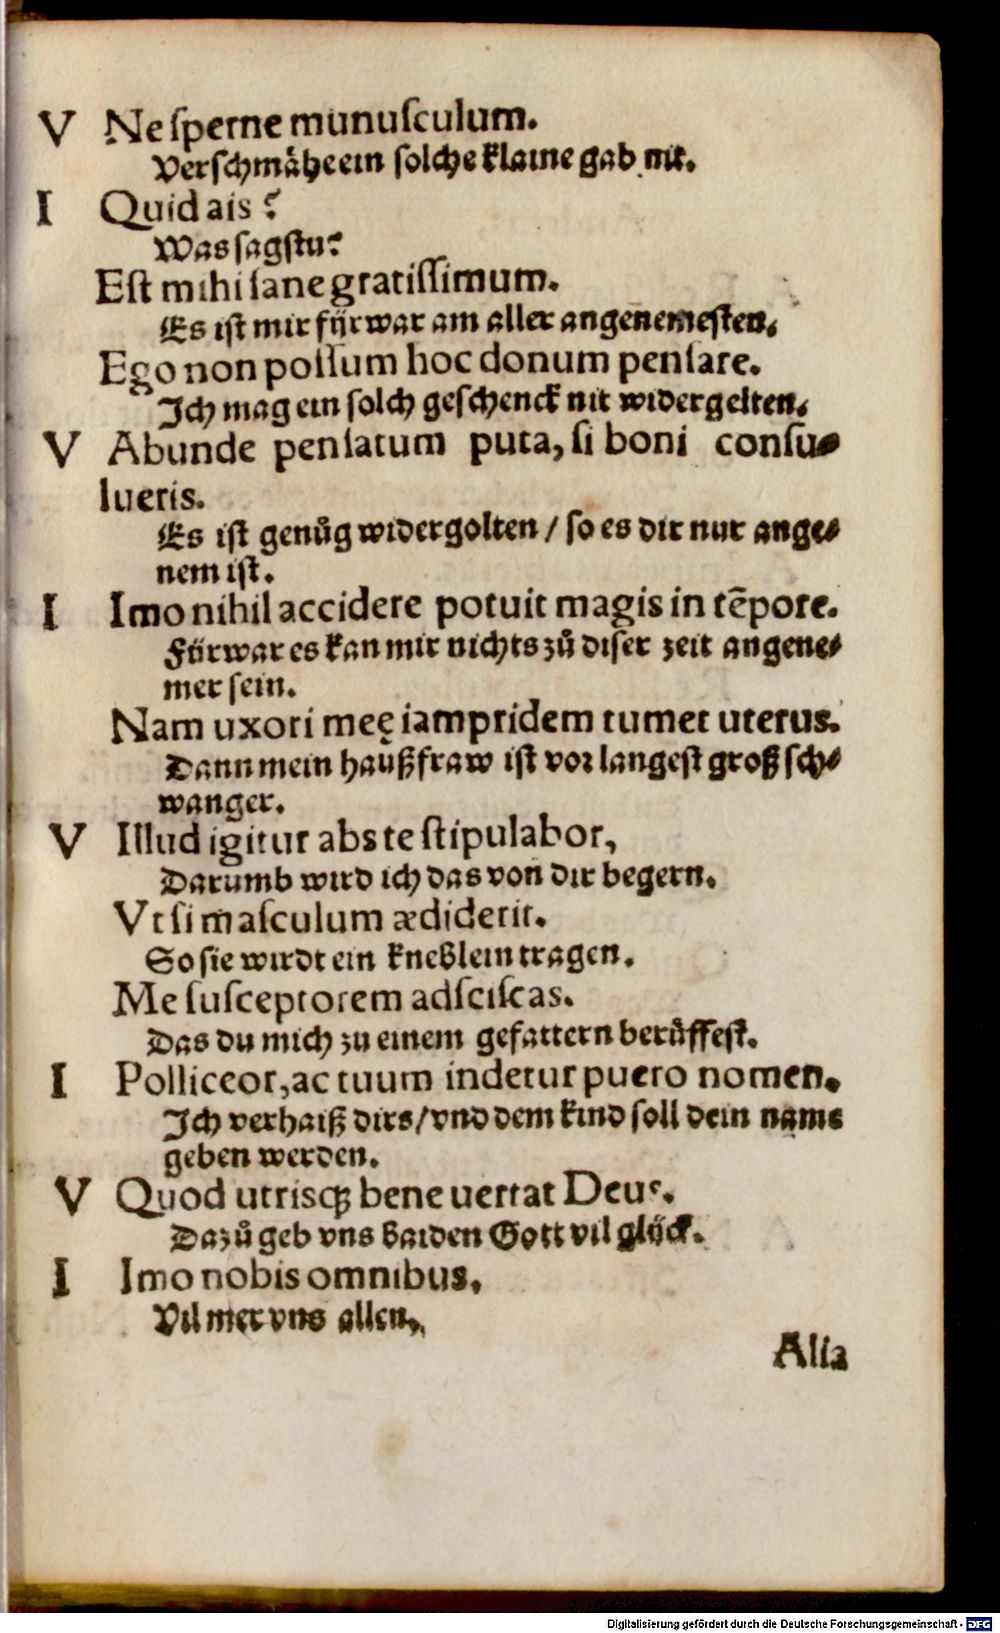 V Ne sperne munusculum.
Verschmåhe ein solche klaine gab nit.
I Quid ais?
Was sagstu?
Est mihi sane gratissimum.
Es ist mir fÿrwar am aller angenemesten.
Ego non possum hoc donum pensare.
Jch mag ein solch geschenck nit widergelten.
V Abunde pensatum puta, si boni consu-
lueris.
Es ist genůg widergolten / so es dir nur ange-
nem ist.
I Imo nihil accidere potuit magis in tẽpore.
Fürwar es kan mir nichts zů diser zeit angene-
mer sein.
Nam uxori meę iampridem tumet uterus.
Dann mein haußfraw ist vor langest groß sch-
wanger.
V Illud igitur abs te stipulabor,
Darumb wird ich das von dir begern.
Vt si masculum ædiderit.
So sie wirdt ein kneblein tragen.
Me susceptorem adsciscas.
Das du mich zu einem gefattern berůffest.
I Polliceor, ac tuum indetur puero nomen.
Jch verhaiß dirs / vnd dem kind soll dein name
geben werden.
V Quod utrisqꝫ bene uertat Deus.
Dazů geb vns baiden Gott vil glÿck.
I Imo nobis omnibus.
Vil mer vns allen.
Alia
Digitalisierung gefördert durch die Deutsche Forschungsgemeinschaft - DFG